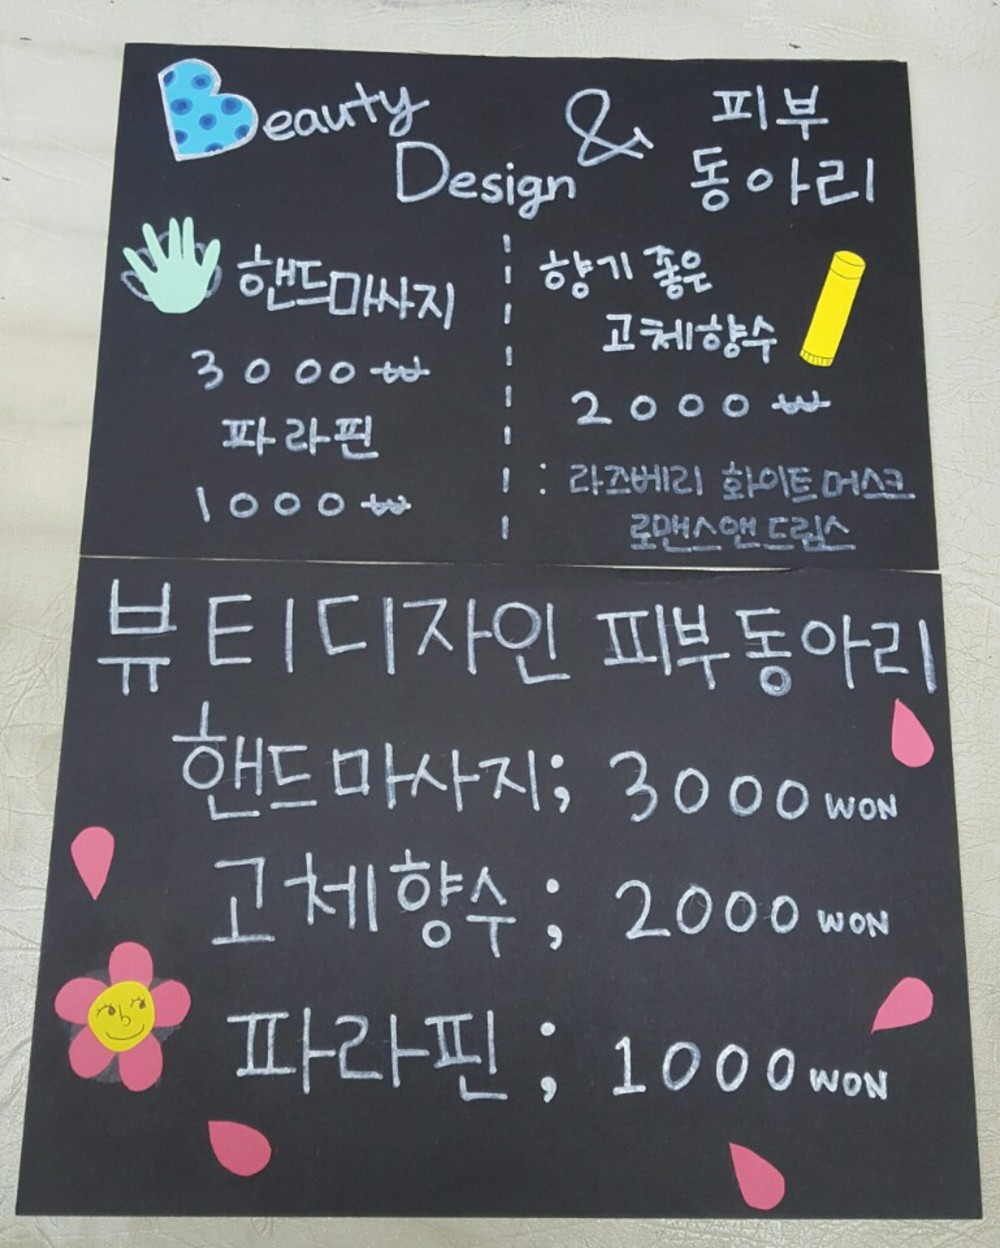 Beauty
Design
&
피부
동아리
핸드마사지
3000₩
파라핀
1000₩
향기 좋은
고체향수
2000₩
: 라즈베리 화이트머스크
로맨스앤드림스
뷰티디자인 피부동아리
핸드마사지; 3000 WON
고체향수; 2000 WON
파라핀; 1000 WON